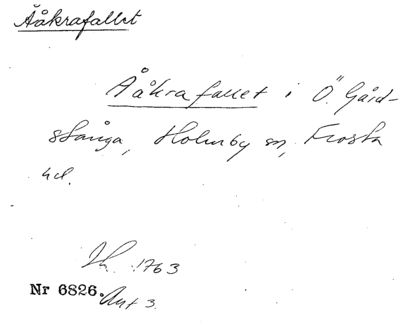 Ååkrafallet
Ååkrafallet i Ö. Gård-
stånga, Holmby sn, Frosta
hd.
Ih. 1763
Nr 6826. Akt 3.